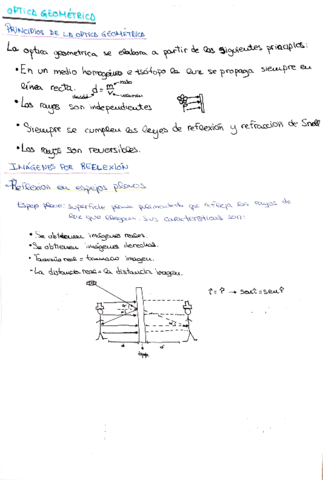 OPTICA GEOMÉTRICA
PRINCIPIOS DE LA OPTICA GEOMÉTRICA
La optica geometrica se elabora a partir de los siguientes principios:
• En un medio homogéneo e isótopo la luz se propaga siempre en
línea recta. d = m/v
• Los rayos son independientes
• Siempre se cumplen las leyes de reflexión y refracción de Snell
• Los rayos son reversibles.
IMÁGENES POR REFLEXIÓN
- Reflexión en espejos planos
Espejo plano: superficie plana que refleja los rayos de
luz que llegan. Sus características son:
• Se obtienen imágenes reales.
• Se obtienen imágenes derechas.
• Tamaño real = tamaño imagen.
- La distancia real = la distancia imagen.